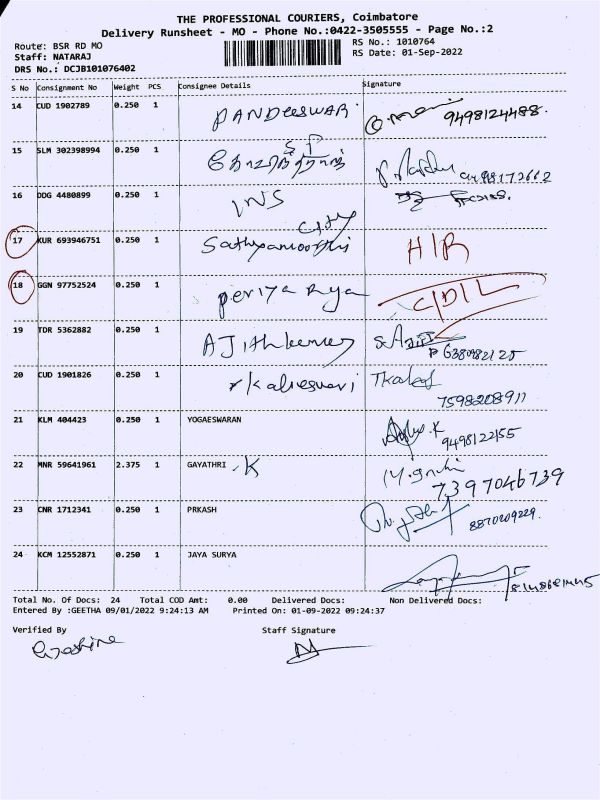 THE PROFESSIONAL COURIERS, Coimbatore
Delivery Runsheet - MO - Phone No.:0422-3505555 - Page No.:2
Route: BSR RD MO
Staff: NATARAJ
DRS No.: DCJB101076402
RS No.: 1010764
RS Date: 01-Sep-2022
S No Consignment No Weight PCS Consignee Details Signature
14 CUD 1902789 0.250 1 PANDEESWAR 9498124488
15 SLM 302398994 0.250 1 S P
16 DDG 4480899 0.250 1 INS
City
17 KUR 693946751 0.250 1 Sathyamoorthi H/R
18 GGN 97752524 0.250 1 periya Raya C/D/L
19 TDR 5362882 0.250 1 AJithkumar
20 CUD 1901826 0.250 1 r kaliesvari
7598208911
21 KLM 404423 0.250 1 YOGAESWARAN
9498122155
22 MNR 59641961 2.375 1 GAYATHRI .K
7397046739
23 CNR 1712341 0.250 1 PRKASH
8870209229
24 KCM 12552871 0.250 1 JAYA SURYA
Total No. Of Docs: 24 Total COD Amt: 0.00 Delivered Docs: Non Delivered Docs:
Entered By :GEETHA 09/01/2022 9:24:13 AM Printed On: 01-09-2022 09:24:37
Verified By Staff Signature